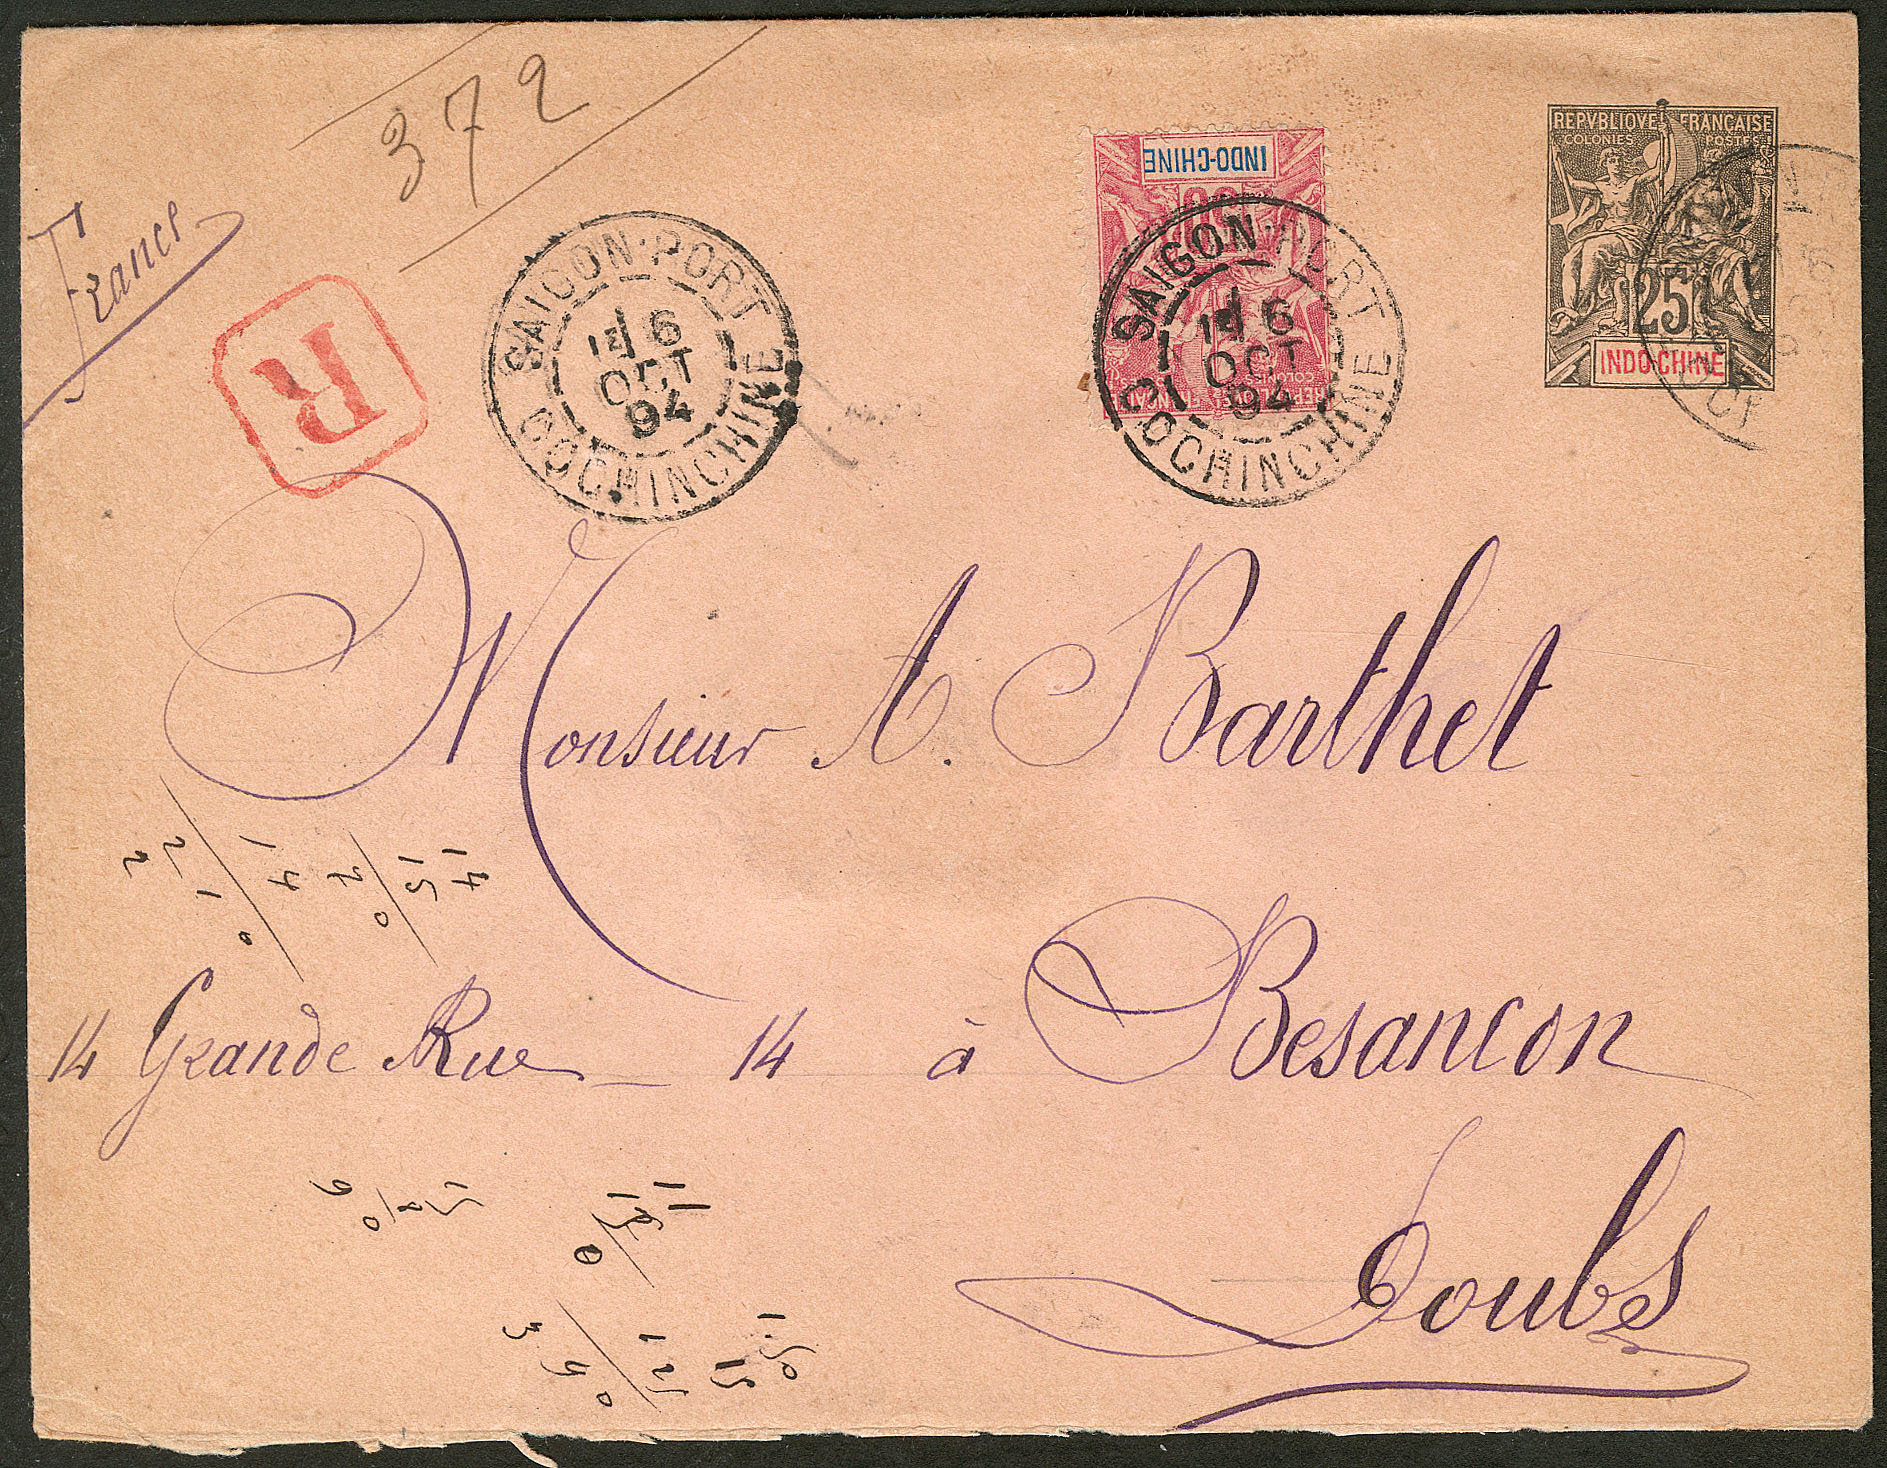 372
France
R
SAIGON-PORT
1E 6
OCT
94
COCHINCHINE
INDO-CHINE
SAIGON-PORT
1E 6
OCT
94
COCHINCHINE
COLONIES
REPVBLIQVE FRANÇAISE
COLONIES POSTES
25
INDO-CHINE
Monsieur A. Barthet
14
15
70
14
210
2
14 Grande Rue - 14 à Besancon
11
0
9
Doubs
1.50
15
125